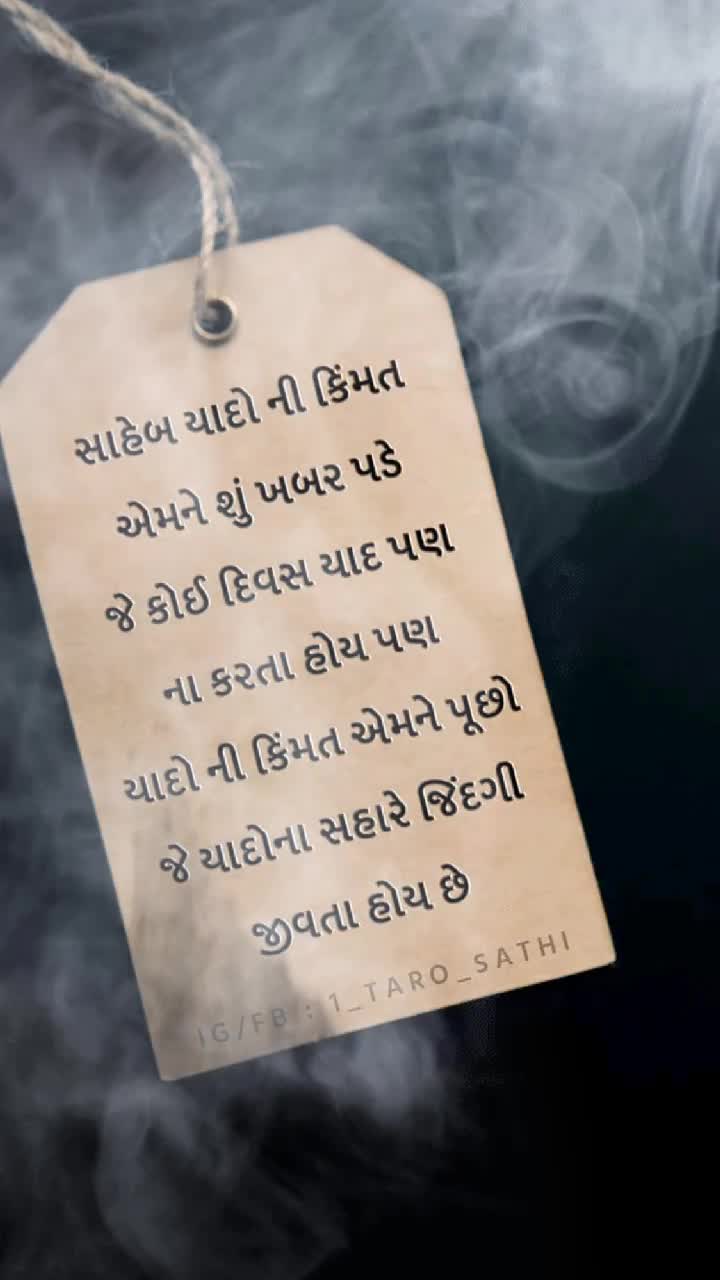 સાહેબ યાદો ની કિંમત
એમને શું ખબર પડે
જે કોઈ દિવસ યાદ પણ
ના કરતા હોય પણ
યાદો ની કિંમત એમને પૂછો
જે યાદોના સહારે જિંદગી
જીવતા હોય છે
IG/FB : 1_TARO_SATHI